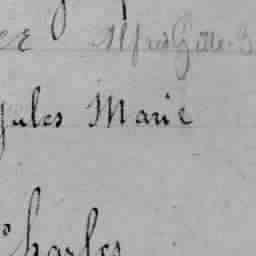 Alfred Gille
Jules Marie
Charles